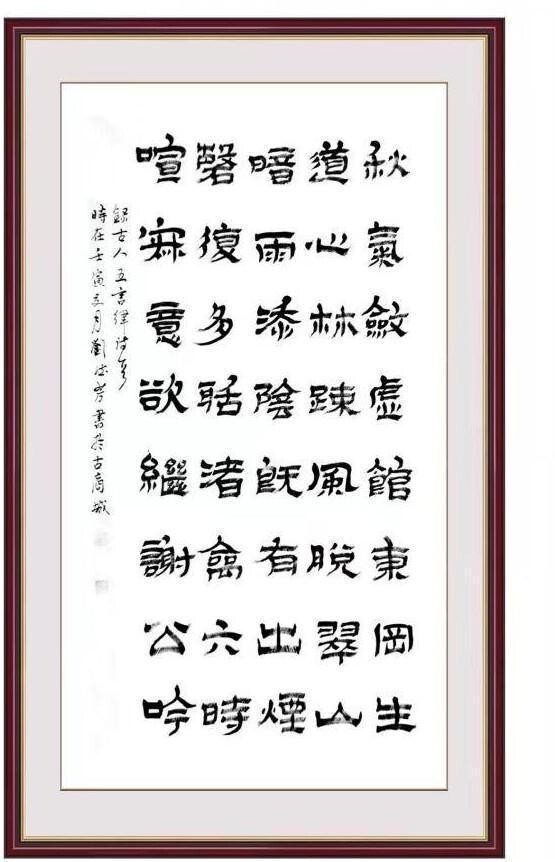 秋氣斂虛館東岡生
道心林踈風脫翠山
暗雨添陰旣有出煙
磬復多聒渚禽六時
喧寐意欲繼謝公吟
錄古人五言律詩
時在壬寅五月劉書於古商城